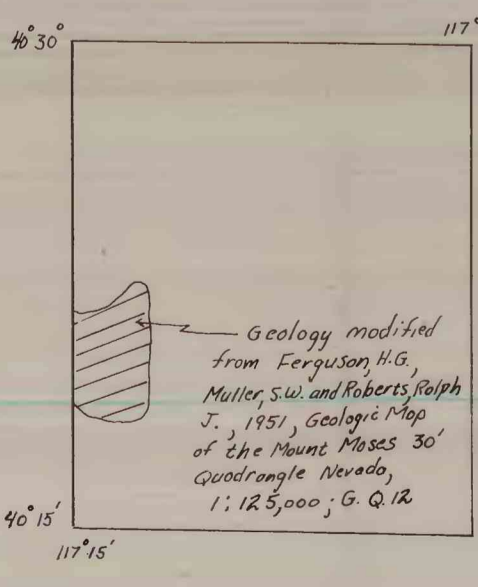 40° 30°
117°
Geology modified
from Ferguson, H.G.,
Muller, S.W. and Roberts, Ralph
J., 1951, Geologic Map
of the Mount Moses 30'
Quadrangle Nevada,
1:125,000; G.Q. 12
40° 15'
117° 15'